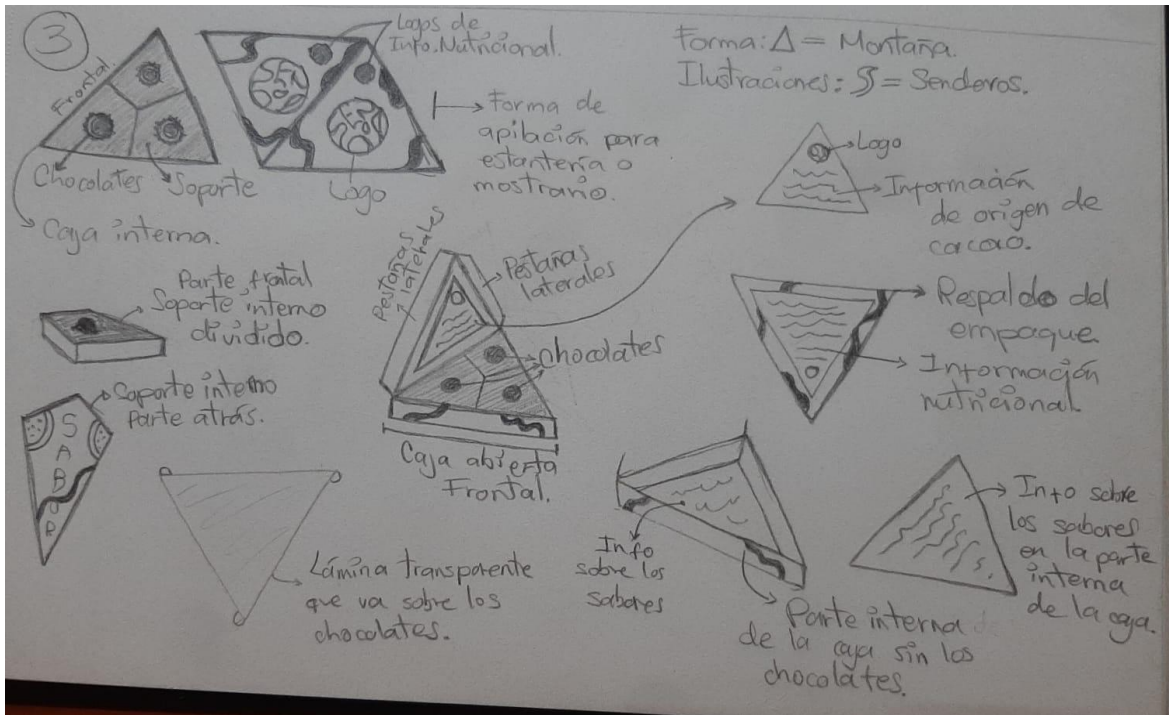 3
Frontal.
Chocolates
Soporte
Caja interna.
Logos de
Info.Nutricional.
Logo
Forma de
apilación para
estantería o
mostrario.
Forma: Δ = Montaña.
Ilustraciones: = Senderos.
Logo
Información
de origen de
cacao.
Parte frontal
Soporte interno
dividido.
Soporte interno
Parte atrás.
S
A
B
O
R
Pestañas
laterales
Pestañas
laterales
Chocolates
Caja abierta
Frontal.
Respaldo del
empaque
Información
nutricional.
Lámina transparente
que va sobre los
chocolates.
Info
sobre los
sabores
Parte interna
de la caja sin los
chocolates.
Info sobre
los sabores
en la parte
interna
de la caja.